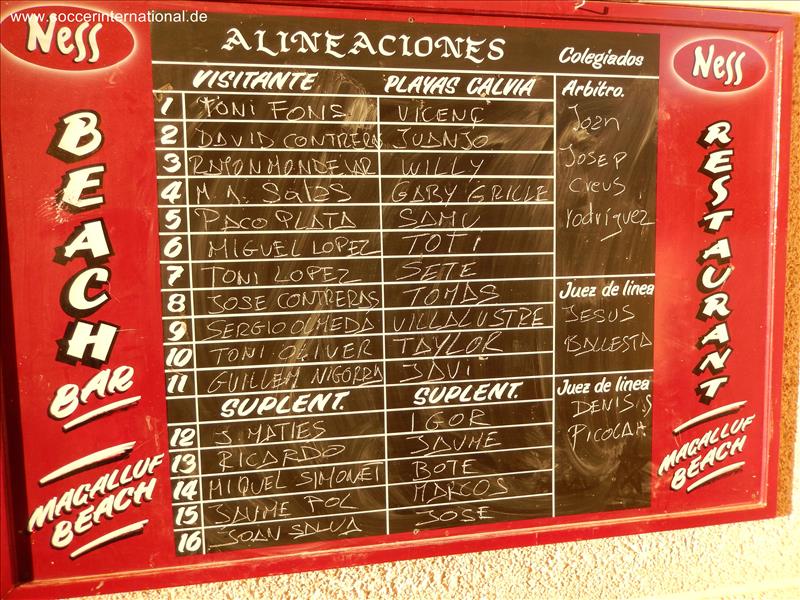 www.soccerinternational.de
Ness
ALINEACIONES
Colegiados
Ness
VISITANTE PLAYAS CALVIA Arbitro.
1 TONI FONS VICENÇ
2 DAVID CONTRERAS JUANJO
3 RAMON MONDEJAR WILLY
4 M.A. Salas GABY GRILLE
5 PACO PLATA SAMU
6 MIGUEL LOPEZ TOTI
7 TONI LOPEZ SETE
8 JOSE CONTRERAS TOMAS
9 SERGIO OLMEDA VILLALUSTRE
10 TONI OLIVER TAYLOR
11 GUILLEM NIGORRA JAVI
SUPLENT. SUPLENT.
12 J. MATIES IGOR
13 RICARDO JAUME
14 MIQUEL SIMONET BOTE
15 JAUME POL MARCOS
16 JOAN SALVA JOSE
JOSEP
CREUS
rodríguez
Juez de linea
JESUS
BALLESTA
Juez de linea
DENIS
BEACH
BAR
MAGALLUF
BEACH
RESTAURANT
MAGALLUF
BEACH